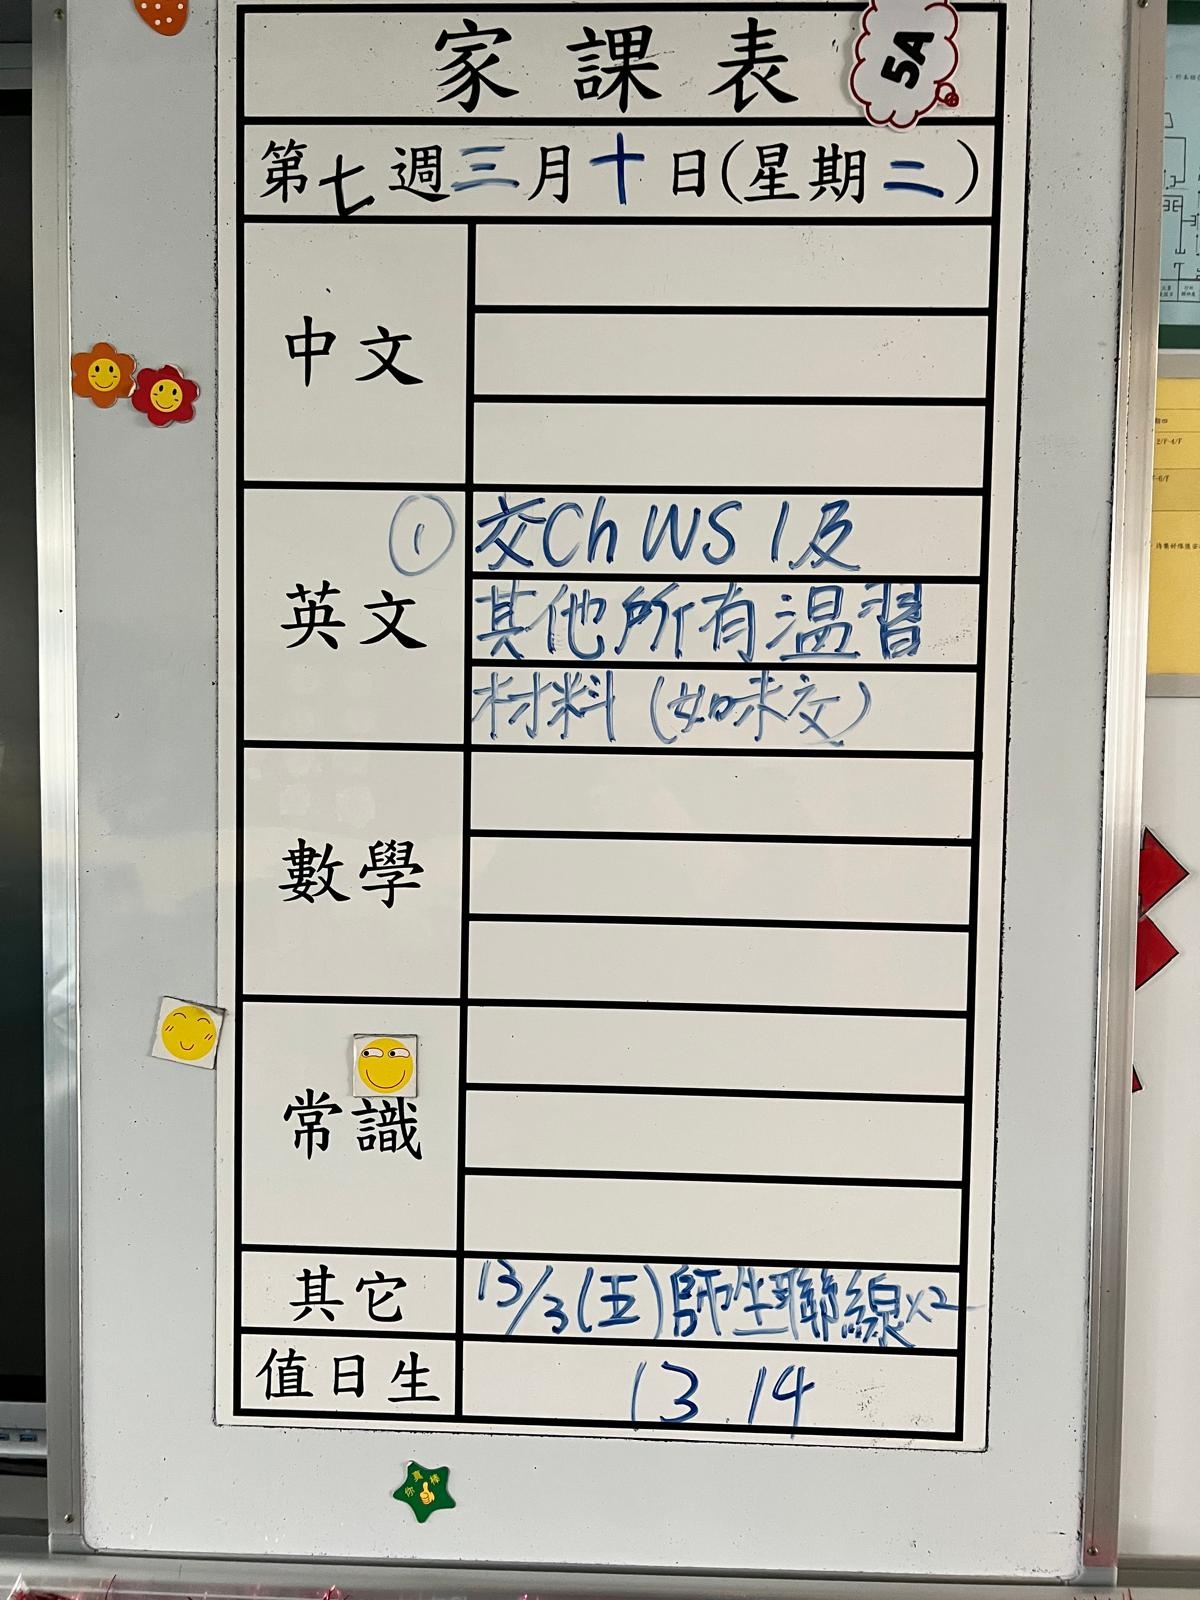 家課表
5A
第七週三月十日(星期二)
中文
英文
① 交Ch WS 1及
其他所有溫習
材料(如未交)
數學
常識
其它
13/3(五)師生聯線x2
值日生
13 . 14
你真棒